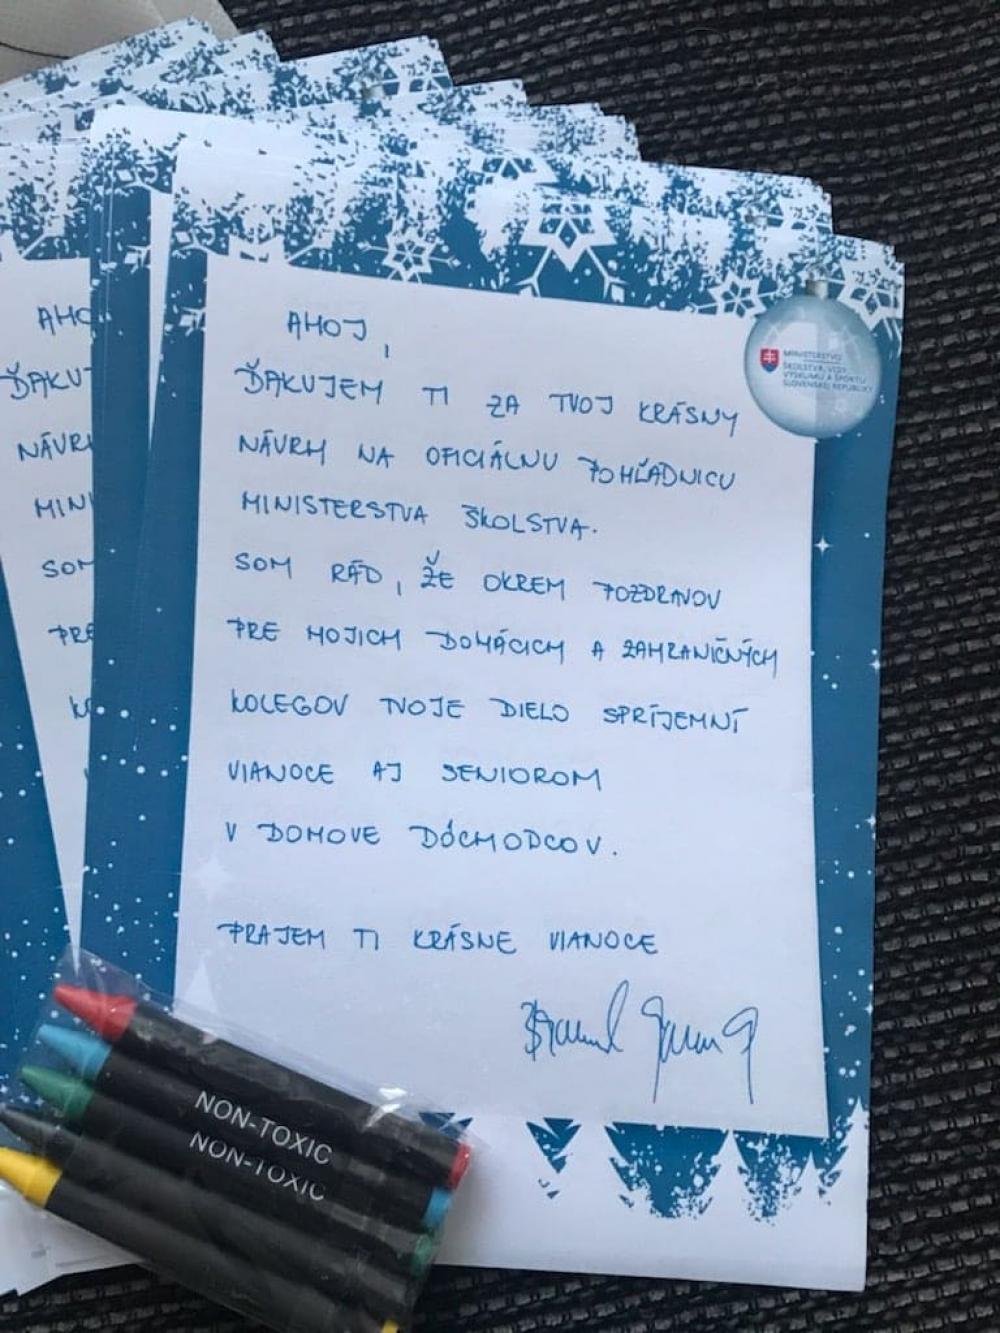 AHOJ,
ĎAKUJEM TI ZA TVOJ KRÁSNY
NÁVRH NA OFICIÁLNU POHĽADNICU
MINISTERSTVA ŠKOLSTVA.
SOM RÁD, ŽE OKREM POZDRAVOV
PRE MOJICH DOMÁCICH A ZAHRANIČNÝCH
KOLEGOV TVOJE DIELO SPRÍJEMNÍ
VIANOCE AJ SENIOROM
V DOMOVE DÔCHODCOV.
PRAJEM TI KRÁSNE VIANOCE
MINISTERSTVO
ŠKOLSTVA, VEDY,
VÝSKUMU A ŠPORTU
SLOVENSKEJ REPUBLIKY
AHO
ĎAKU
NÁVR
MINI
SOM
PRE
KO
NON-TOXIC
NON-TOXIC